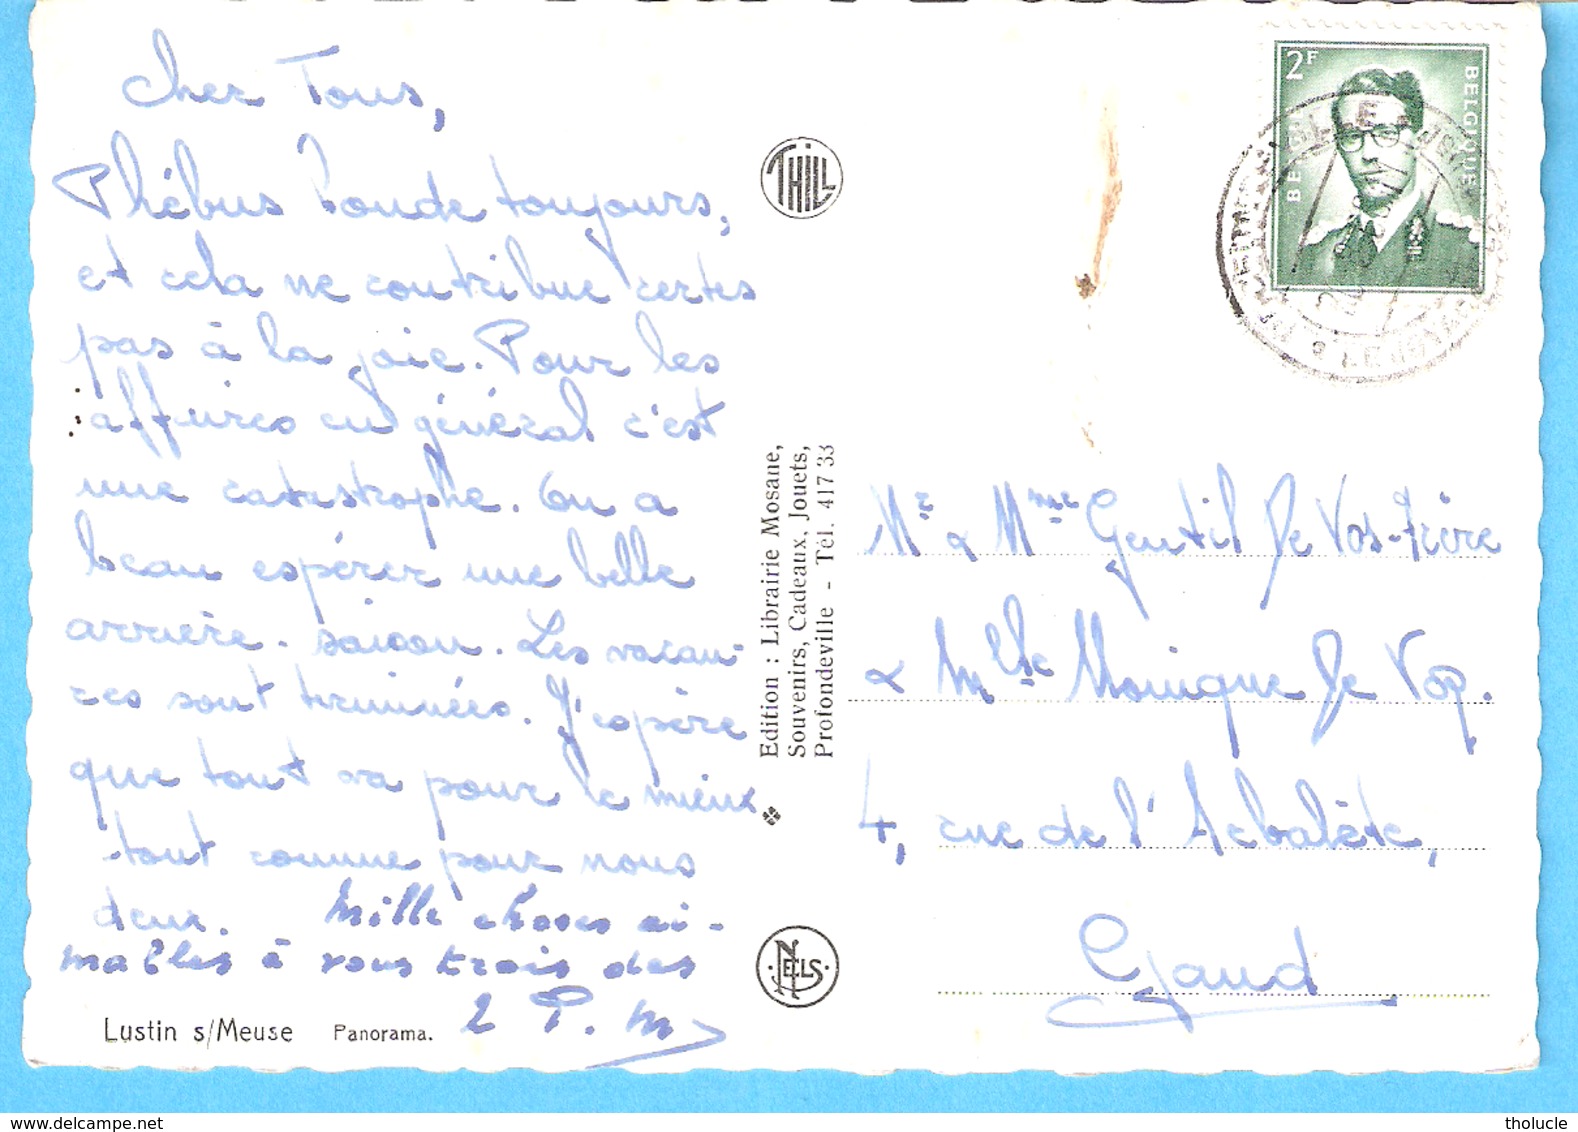 Cher Tous,
Phébus boude toujours,
et cela ne contribue certes
pas à la joie. Pour les
affaires en général c'est
une catastrophe. On a
beau espérer une belle
arrière-saison. Les vacan-
ces sont terminées. J'espère
que tout va pour le mieux
tout comme pour nous
deux. Mille choses ai-
mables à vous trois des
2 P. M
Lustin s/Meuse Panorama.
THILL
Edition : Librairie Mosane,
Souvenirs, Cadeaux, Jouets,
Profondeville - Tél. 417 33
NELS
2F
BELGIQUE
BELGIE
Mr & Mme Gentil De Vos-Frère
& Mlle Monique De Vos.
4, rue de l'Arbalète,
Gand
tholucle